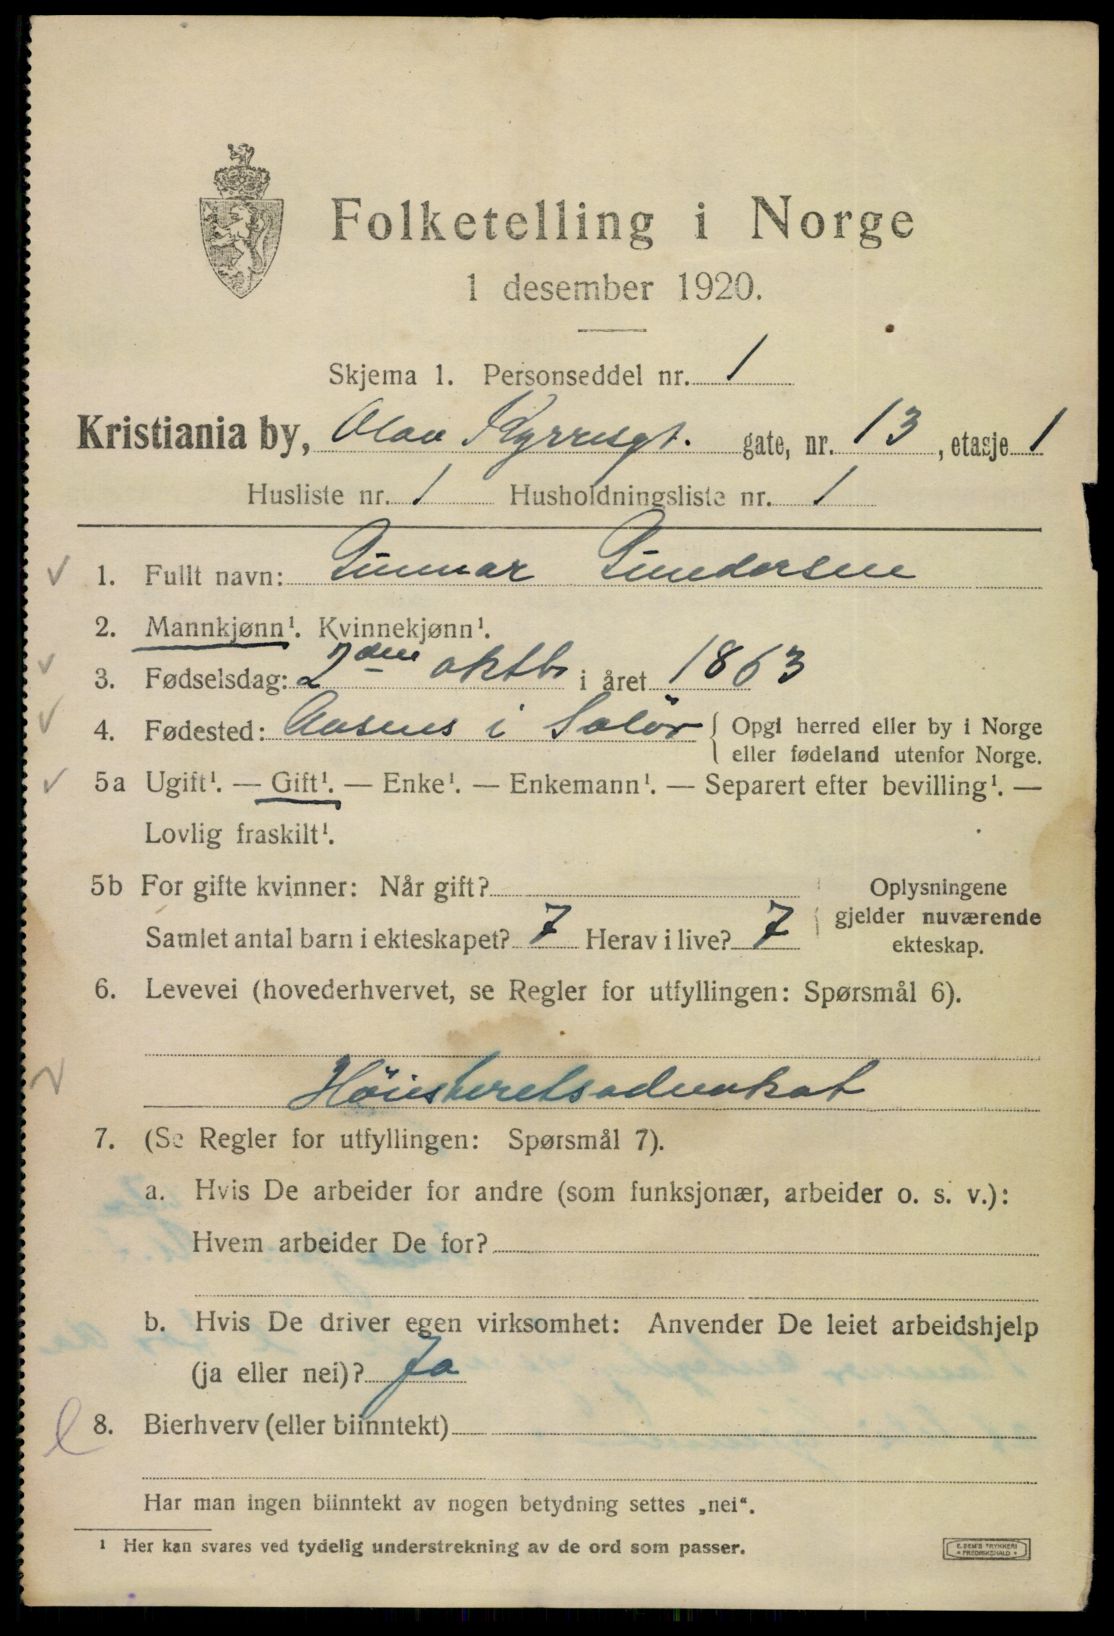 Folketelling i Norge
1 desember 1920.
Skjema 1. Personseddel nr. 1
Kristiania by, Olav Kyrresgt. gate, nr. 13, etasje 1
Husliste nr. 1 Husholdningsliste nr. 1
1. Fullt navn: Gunnar Gundersen
2. Mannkjønn¹. Kvinnekjønn¹.
3. Fødselsdag: 2den oktbr i året 1863
4. Fødested: Aasnes i Solør { Opgi herred eller by i Norge
eller fødeland utenfor Norge.
5a Ugift¹. — Gift¹. — Enke¹. — Enkemann¹. — Separert efter bevilling¹. —
Lovlig fraskilt¹.
5b For gifte kvinner: Når gift?
Samlet antal barn i ekteskapet? 7 Herav i live? 7
Oplysningene
gjelder nuværende
ekteskap.
6. Levevei (hovederhvervet, se Regler for utfyllingen: Spørsmål 6).
Höiesteretsadvokat
7. (Se Regler for utfyllingen: Spørsmål 7).
a. Hvis De arbeider for andre (som funksjonær, arbeider o. s. v.):
Hvem arbeider De for?
b. Hvis De driver egen virksomhet: Anvender De leiet arbeidshjelp
(ja eller nei)? Ja
8. Bierhverv (eller biinntekt)
Har man ingen biinntekt av nogen betydning settes „nei“.
¹ Her kan svares ved tydelig understrekning av de ord som passer.
E. SEM'S TRYKKERI
FREDRIKSHALD